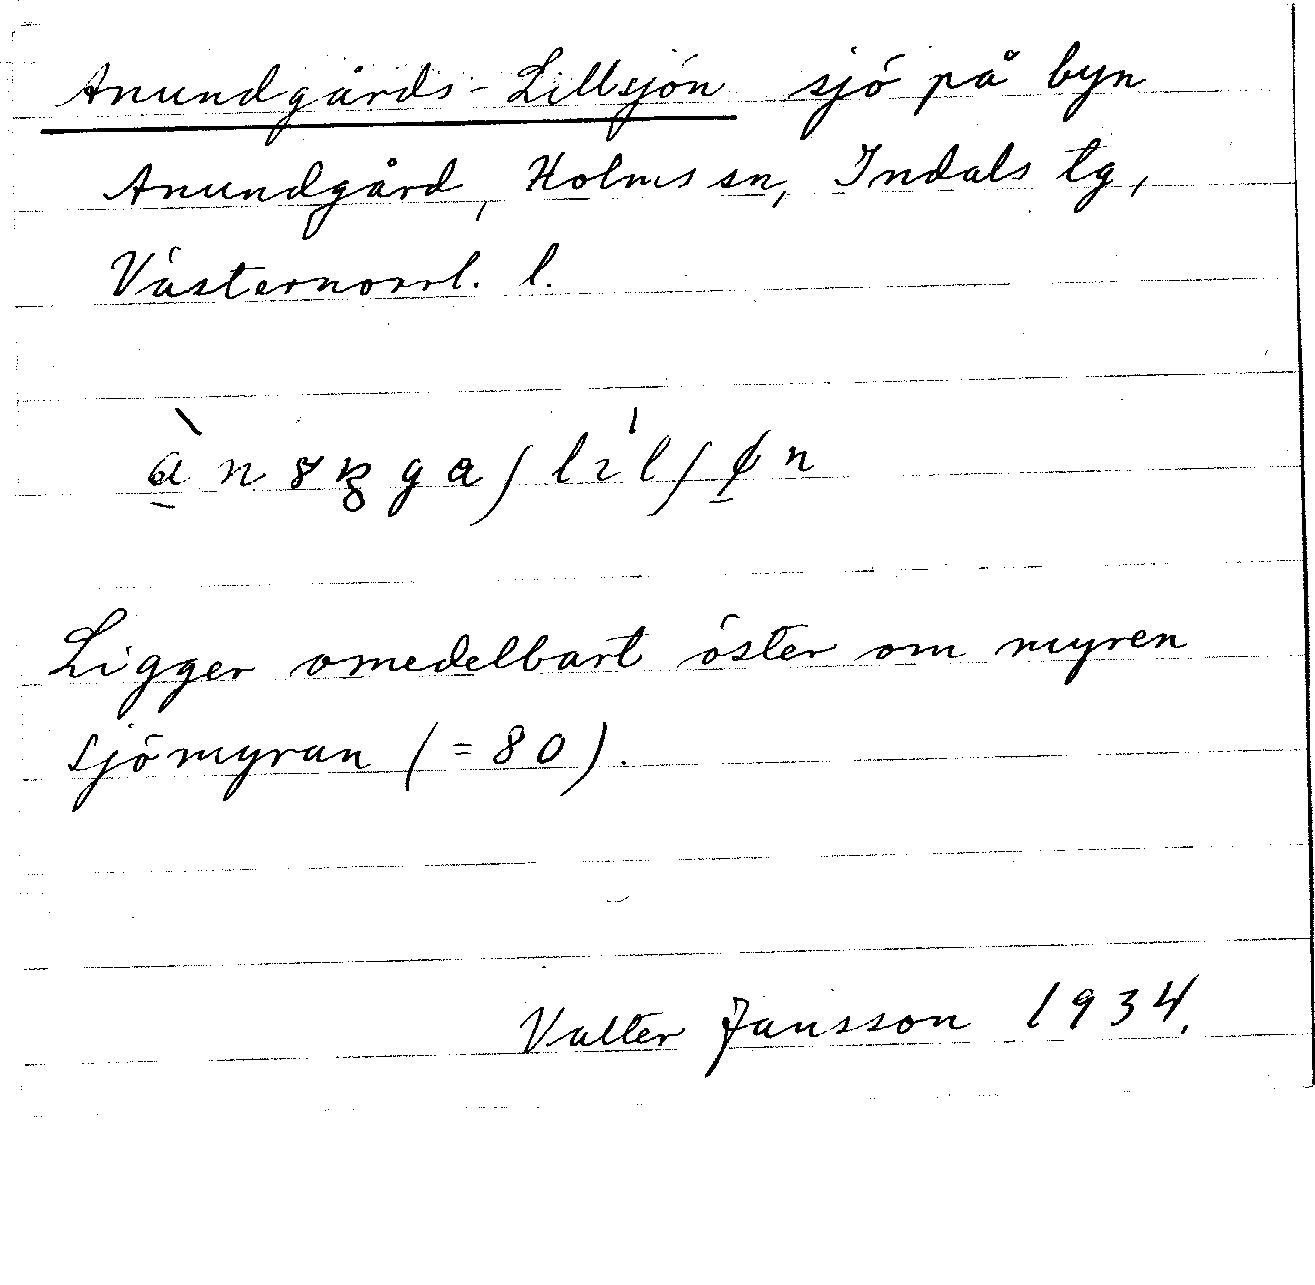 Anundgårds-Lillsjön sjö på byn
Anundgård, Holms sn, Indals tg,
Västernorrl. l.
Ligger omedelbart öster om myren
sjömyran (=80).
Valter Jansson 1934.